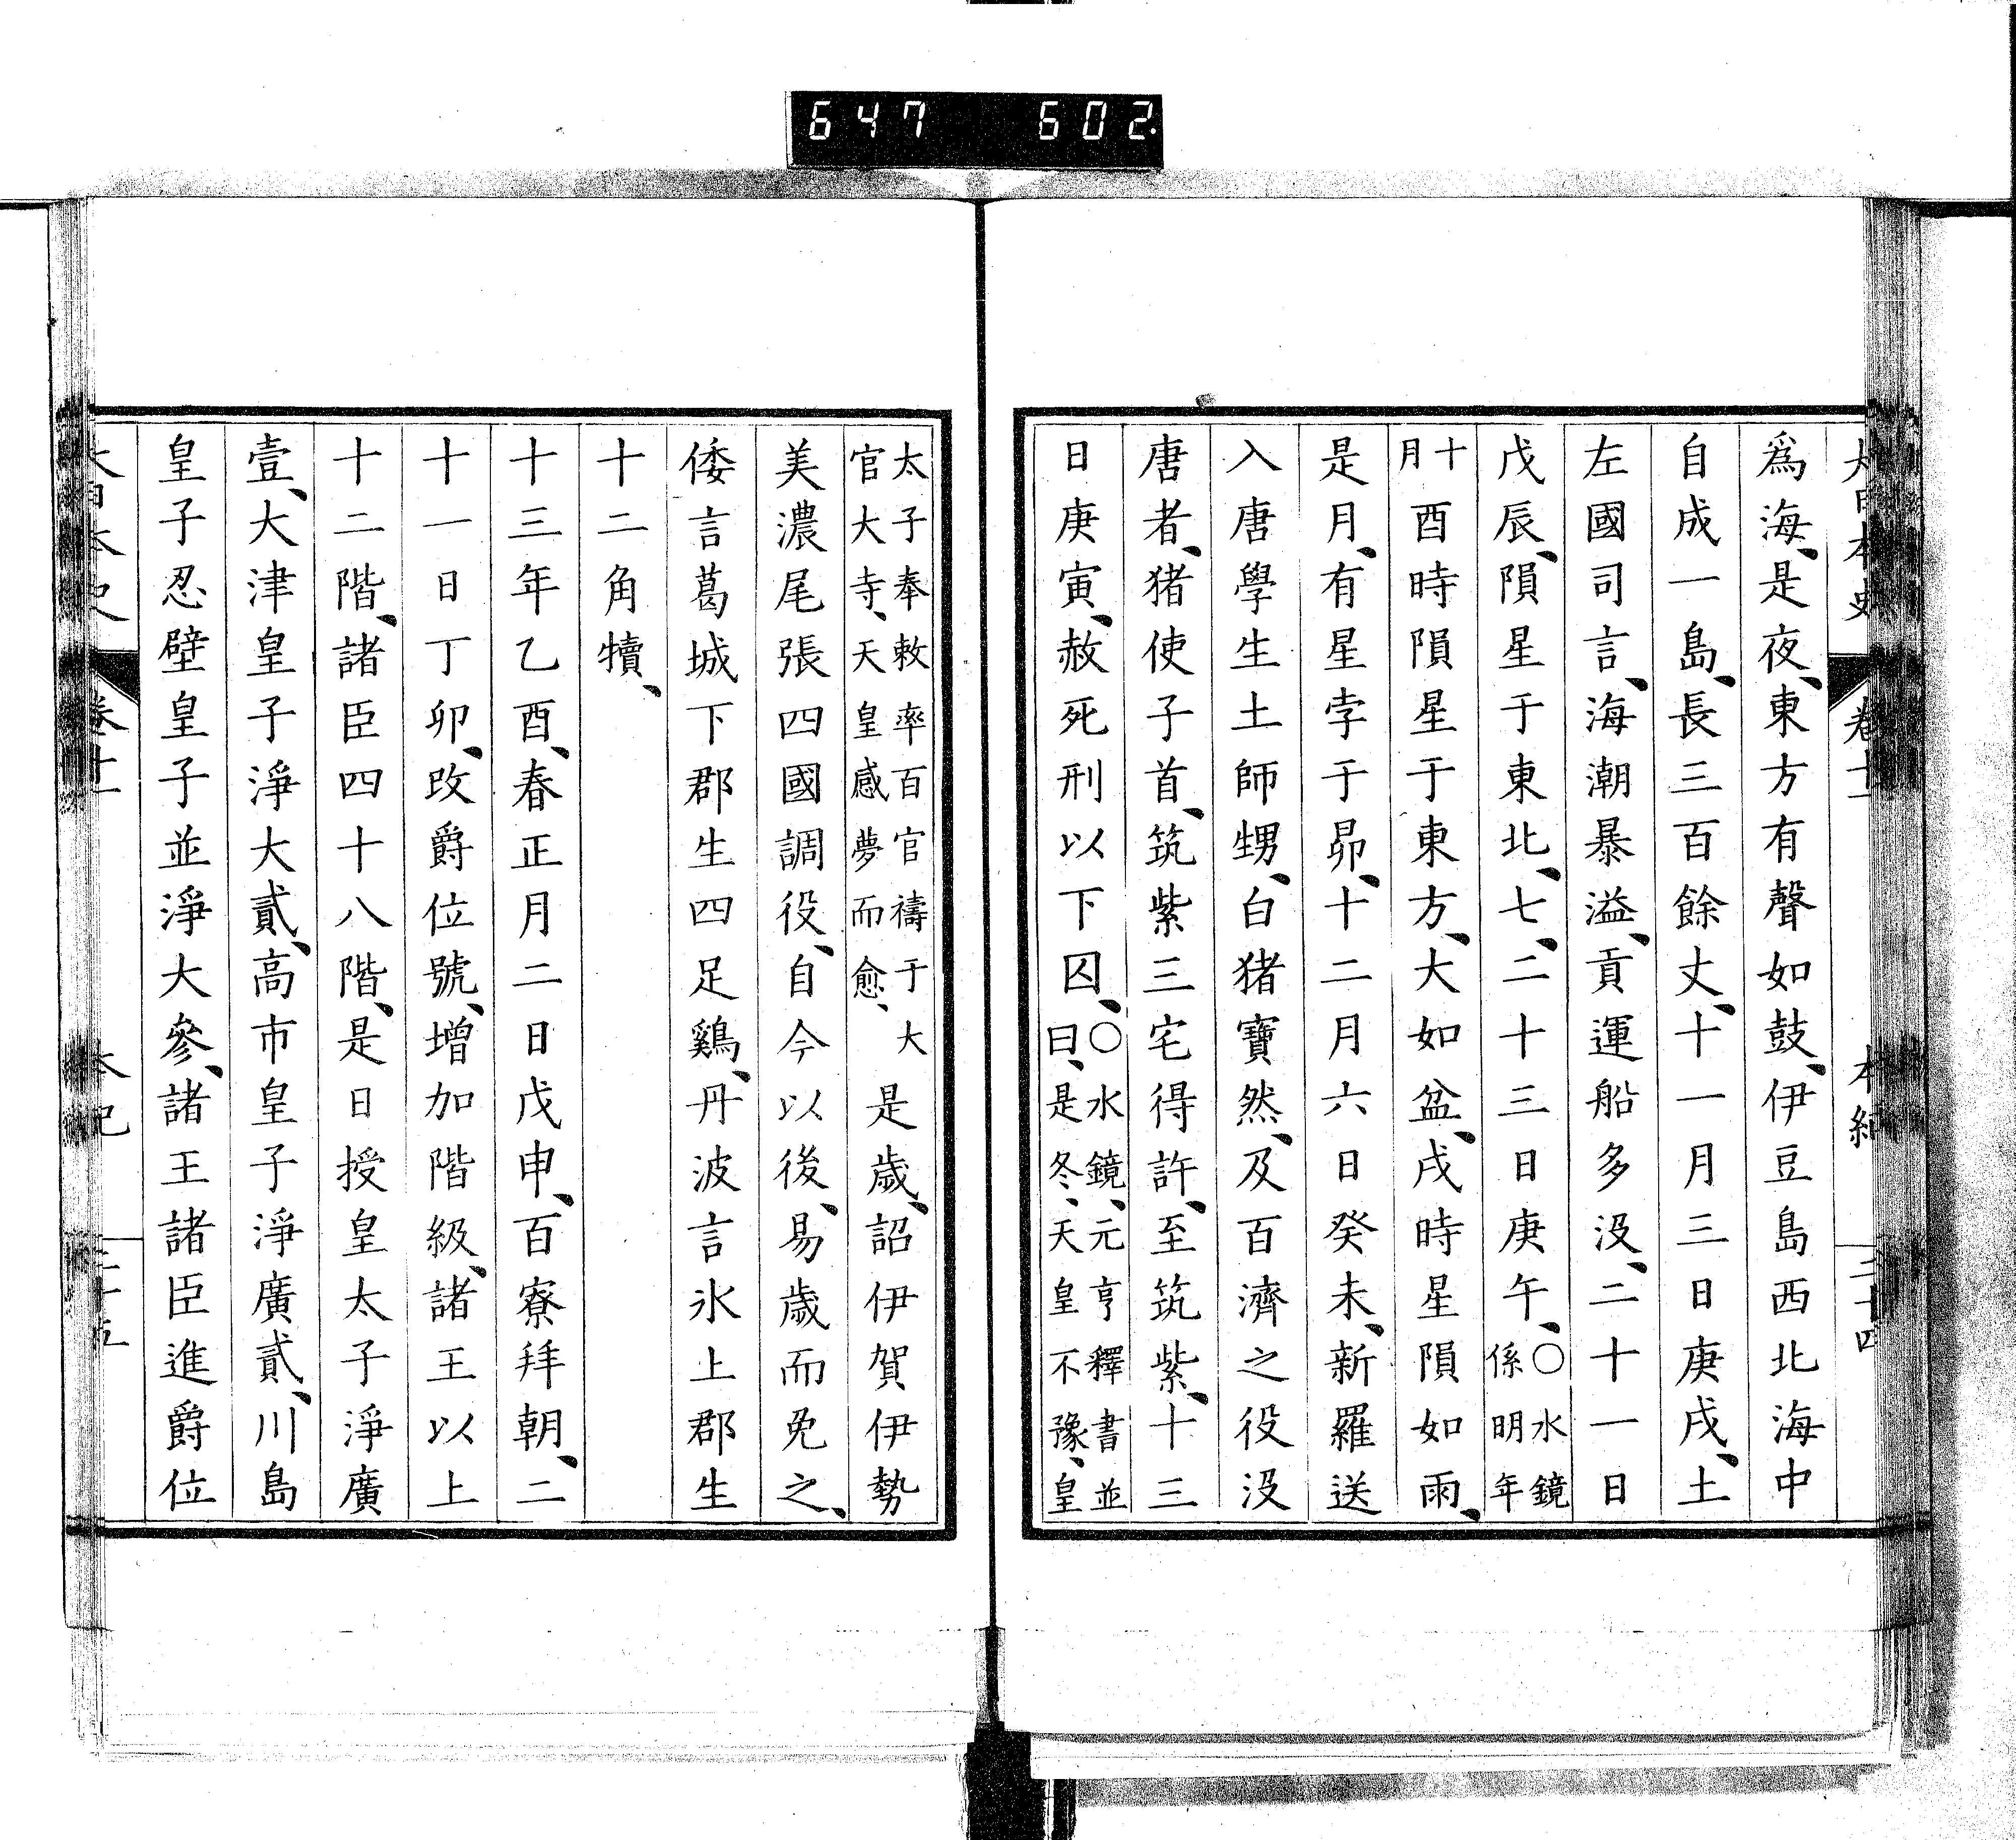 647 602.
大日本史 卷十一 本紀 二十四
爲海、是夜、東方有聲如鼓、伊豆島西北海中
自成一島、長三百餘丈、十一月三日庚戌、土
左國司言、海潮暴溢、貢運船多沒、二十一日
戊辰、隕星于東北、七、二十三日庚午、〇水鏡係明年
十月酉時隕星于東方、大如盆、戌時星隕如雨、
是月、有星孛于昴、十二月六日癸未、新羅送
入唐學生土師甥、白猪寶然、及百濟之役沒
唐者、猪使子首、筑紫三宅得許、至筑紫、十三
日庚寅、赦死刑以下囚、〇水鏡、元亨釋書並曰、是冬、天皇不豫、皇
太子奉敕率百官禱于大官大寺、天皇感夢而愈、是歲、詔伊賀伊勢
美濃尾張四國調役、自今以後、易歲而免之、
倭言葛城下郡生四足鷄、丹波言氷上郡生
十二角犢、
十三年乙酉、春正月二日戊申、百寮拜朝、二
十一日丁卯、改爵位號、增加階級、諸王以上
十二階、諸臣四十八階、是日授皇太子淨廣
壹、大津皇子淨大貳、高市皇子淨廣貳、川島
皇子忍壁皇子並淨大參、諸王諸臣進爵位
大日本史 卷十一 本紀 二十五